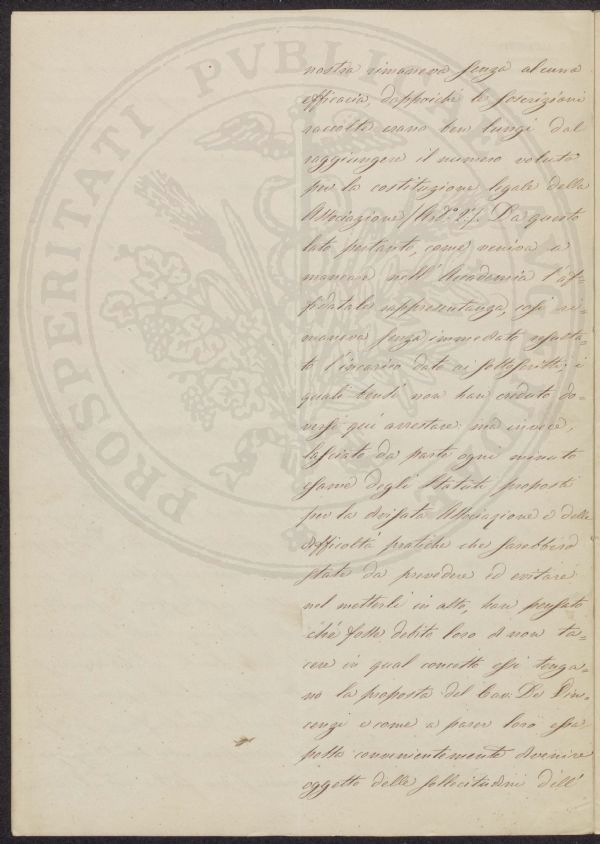 nostra rimaneva senza alcuna
efficacia, dappoichè le soscrizioni
raccolte erano ben lungi dal
raggiungere il numero voluto
per la costituzione legale della
Associazione (Art.° 2°). Da questo
lato pertanto, come veniva a
mancare nell'Accademia l'af=
fidatale rappresentanza, così ri=
maneva senza immediato risulta=
to l'incarico dato ai sottoscritti; i
quali tendi non han creduto do=
versi qui arrestare: ma invece,
lasciato da parte ogni minuto
esame degli Statuti proposti
per la divisata Associazione e delle
difficoltà pratiche che sarebbero
state da prevedere ed evitare
nel metterli in atto, han pensato
che fosse debito loro di non ta=
cere in qual concetto essi tenga=
no la proposta del Cav: De Vin=
cenzi e come a parer loro essa
possa convenientemente divenire
oggetto delle sollecitudini dell'
PROSPERITATI PVBLICAE